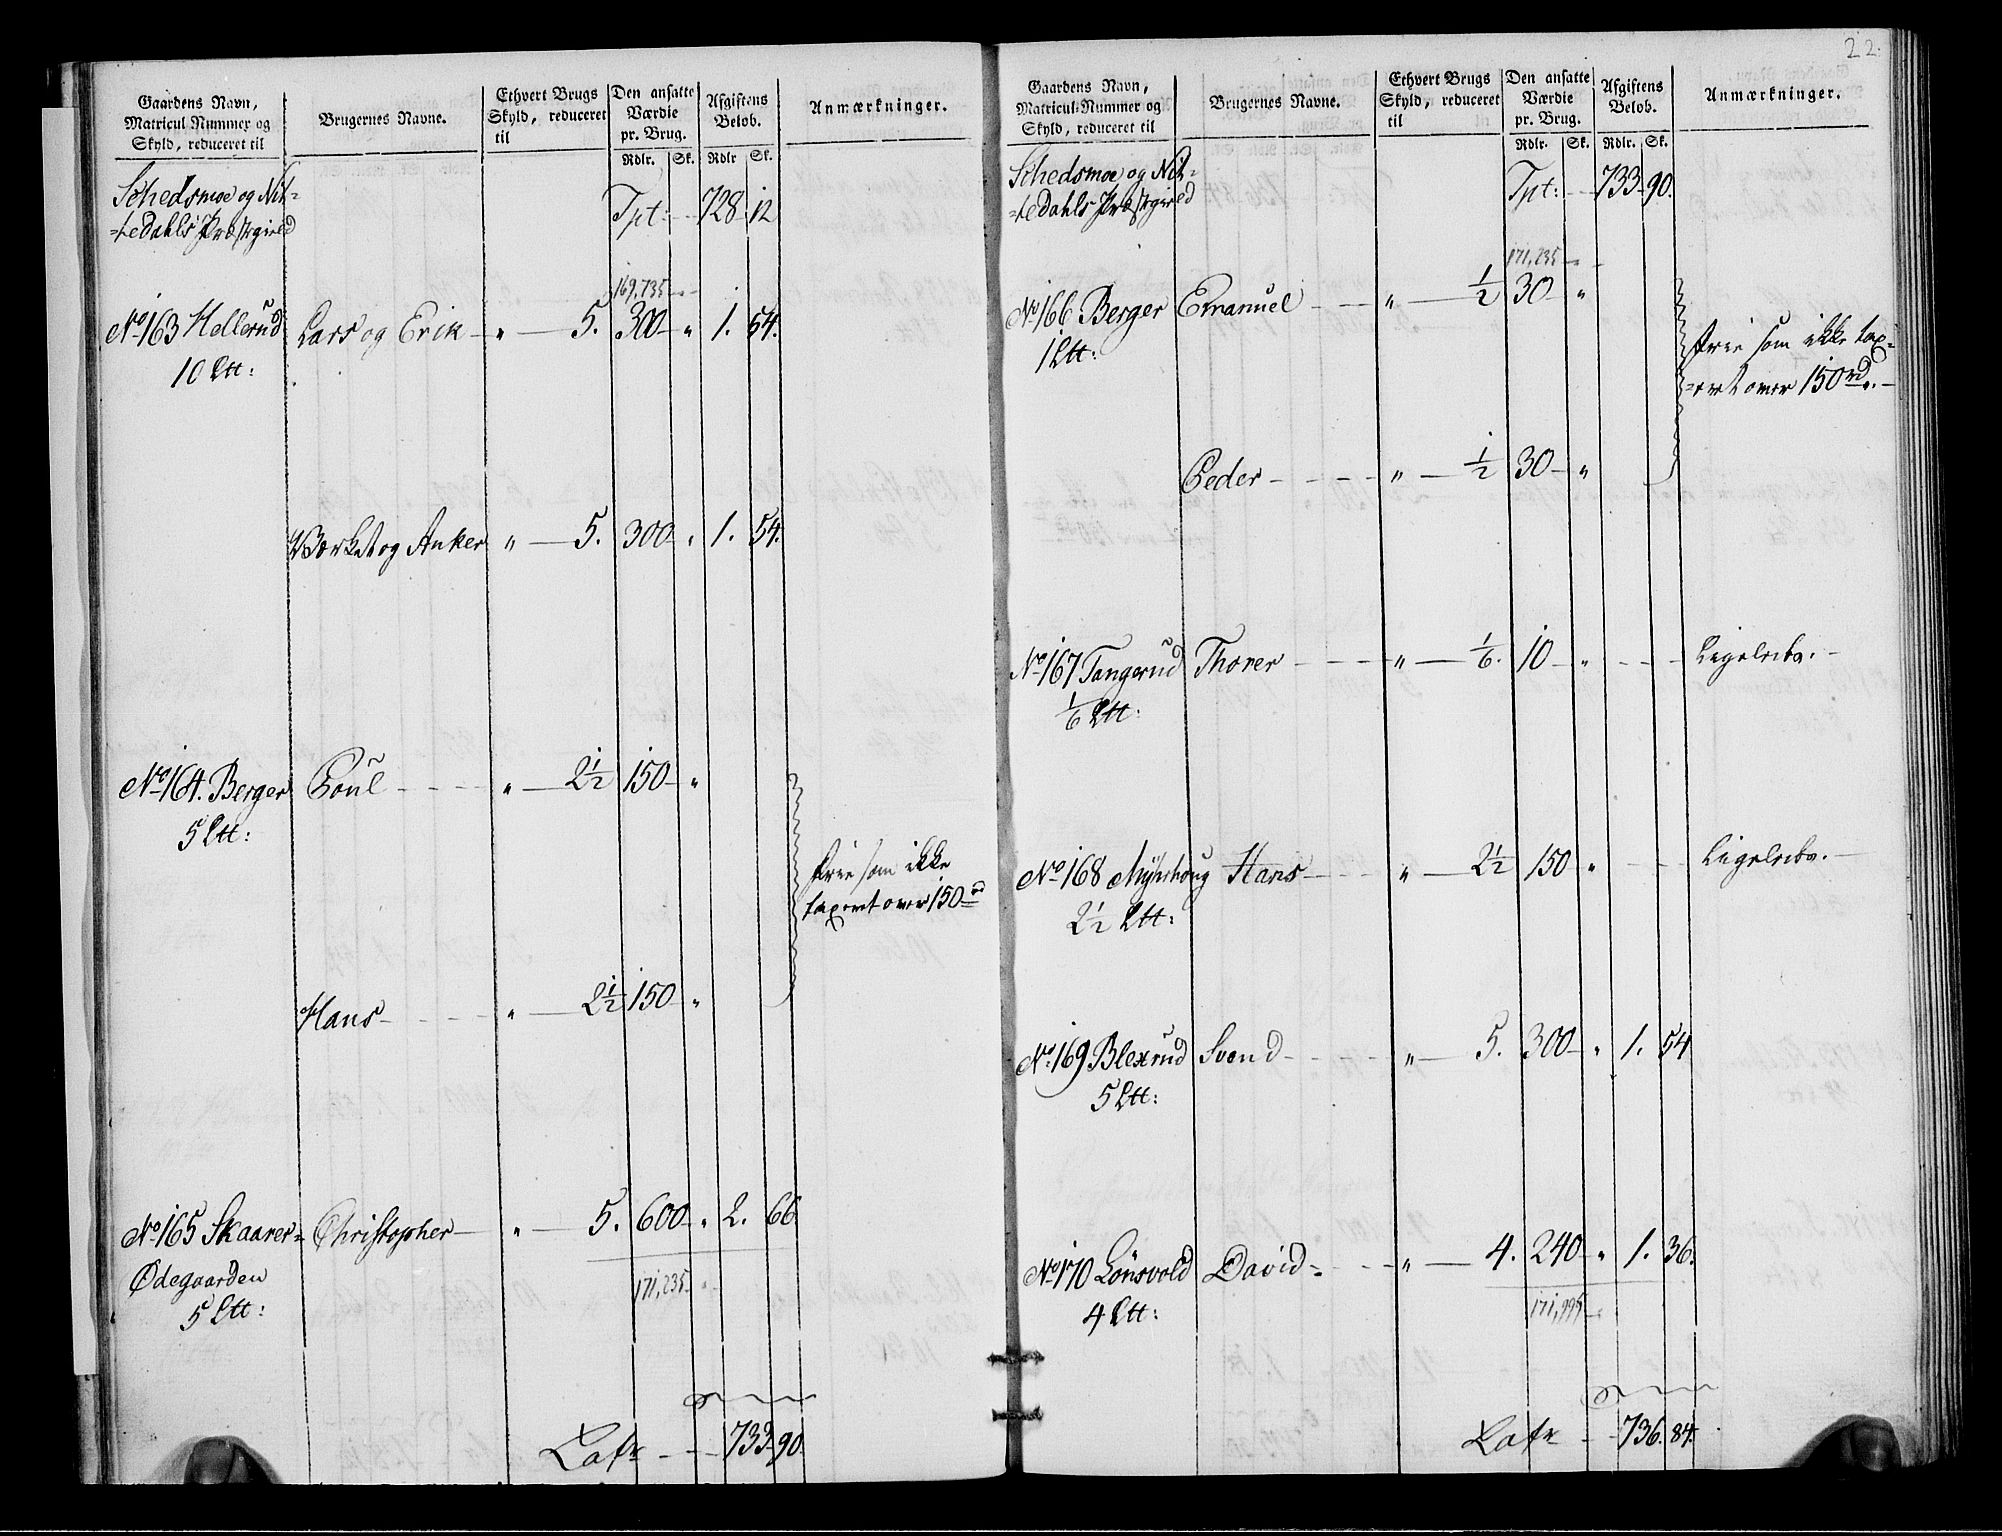 Gaardens Navn, Matricul Nummer og Skyld, reduceret til | Brugernes Navne. | Ethvert Brugs Skyld, reduceret til | Den ansatte Værdie pr. Brug. Rdlr. Sk. | Afgiftens Beløb. Rdlr Sk. | Anmærkninger.
Schedsmoe og Nit-
=tedahls Præstgield Tpt: 728 12
169,735
No 163 Hellerud Lars og Erik „ 5. 300 „ 1. 54.
10 Ltt:
Værket og Anker „ 5. 300 „ 1. 54.
No 164. Berger Poul „ 2½ 150 „
5 Ltt:
frie som ikke
taxert over 150 rd
Hans „ 2½ 150 „
No 165 Skaarer= Christopher „ 5. 600 „ 2. 66
Ødegaarden 171,235
5 Ltt:
Lafr 733 90.
22.
Gaardens Navn, Matricul-Nummer og Skyld, reduceret til | Brugernes Navne. | Ethvert Brugs Skyld, reduceret til | Den ansatte Værdie pr. Brug. Rdlr. Sk. | Afgiftens Beløb. Rdlr. Sk. | Anmærkninger.
Schedsmoe og Nit=
=tedahls Præstgield Tpt: 733 90.
171,235
No 166 Berger Emanuel „ ½ 30 „
1 Ltt:
frie som ikke tax=
=ert over 150 rd.
Peder „ ½ 30 „
No 167 Tangerud Thorer „ 1/6. 10 „ Ligeledes.
1/6 Ltt:
No 168 Myhrhoug Hans „ 2½ 150 „ Ligeledes.
2½ Ltt:
No 169 Blexrud Svend „ 5. 300 „ 1. 54
5 Ltt:
No 170 Lönsvold David „ 4. 240 „ 1. 36.
4 Ltt: 171,995
Lafr 736. 84.